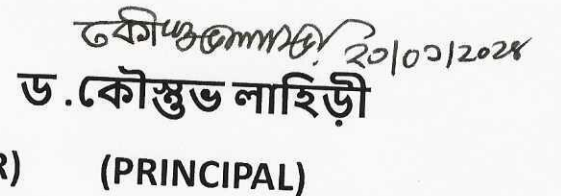 কৌস্তুভ লাহিড়ী ২০/০১/২০২৪
ড.কৌস্তুভ লাহিড়ী
R) (PRINCIPAL)